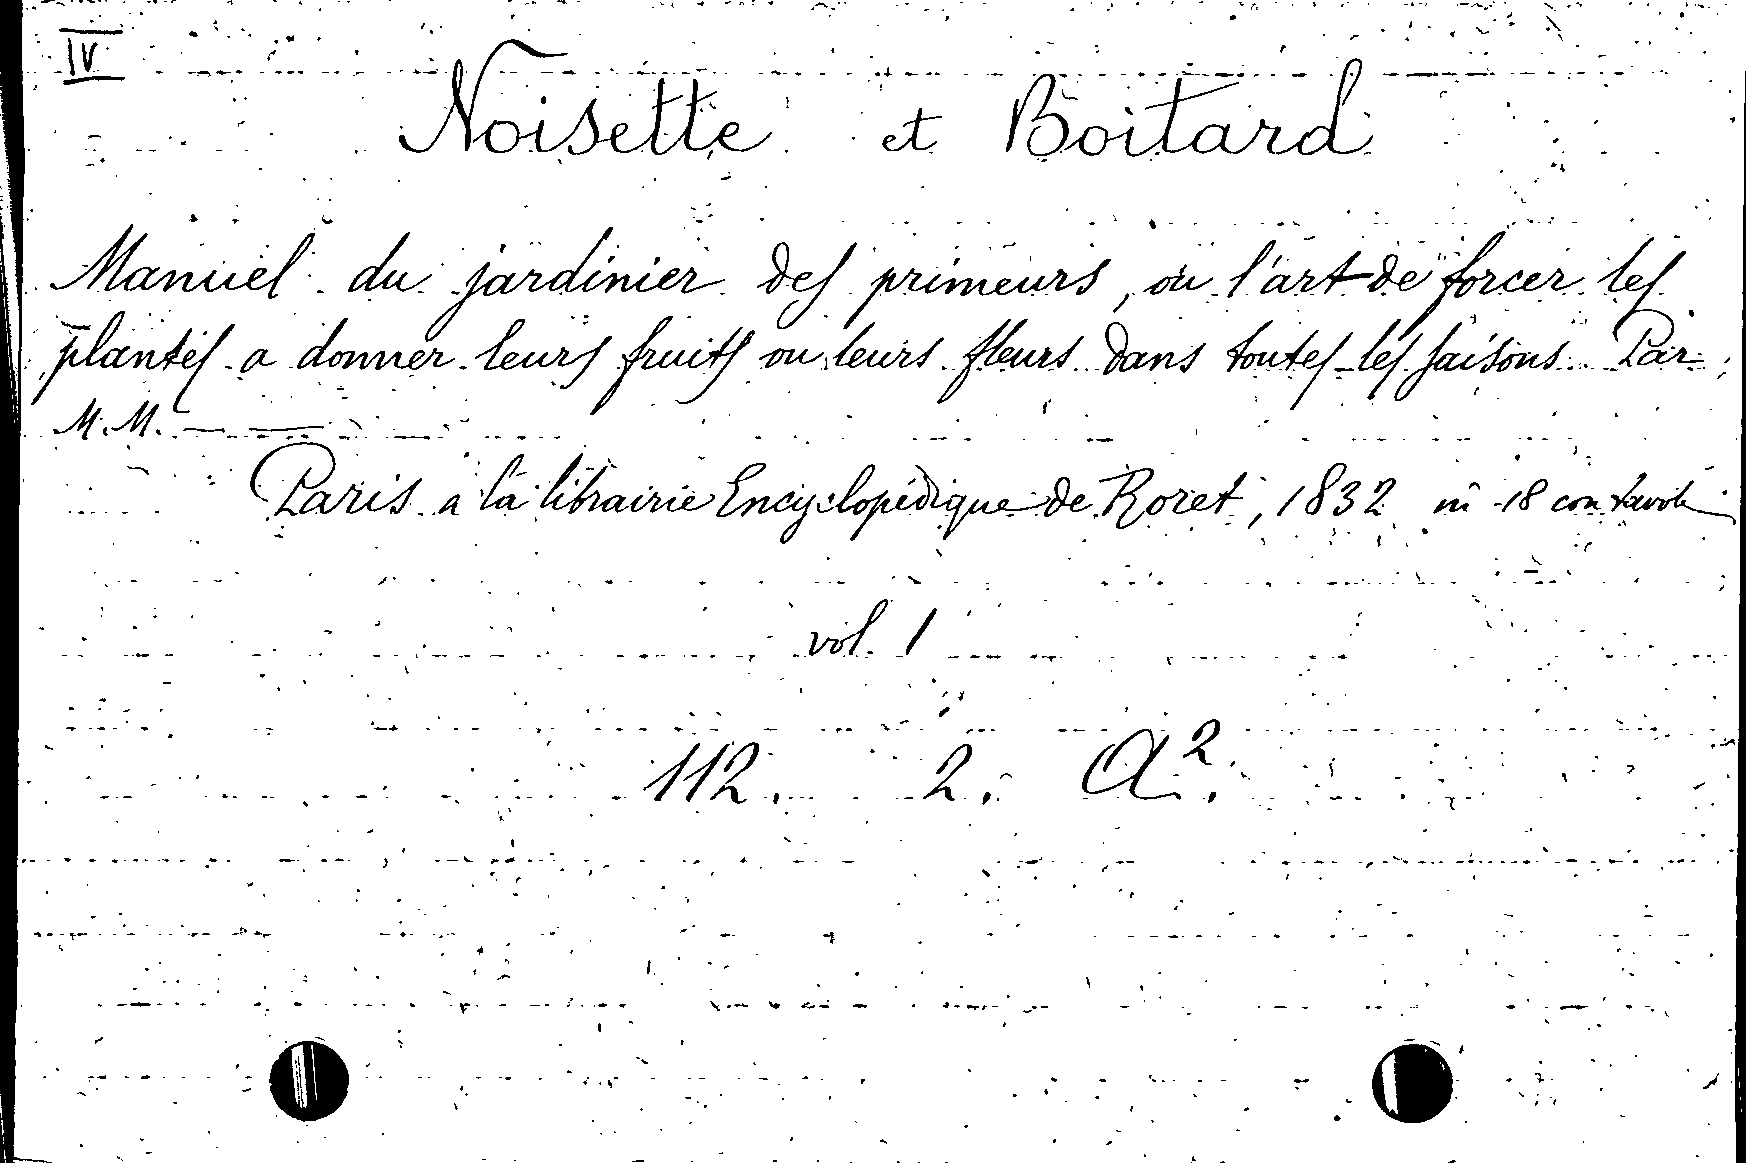 IV
Noisette et Boitard
Manuel du jardinier des primeurs, ou l'art de forcer les
plantes a donner leurs fruits ou leurs fleurs dans toutes les saisons. Par
M.M. — —
Paris a la librairie Encyclopédique de Roret, 1832 in-18 con tavole
vol. 1
112. 2. A².